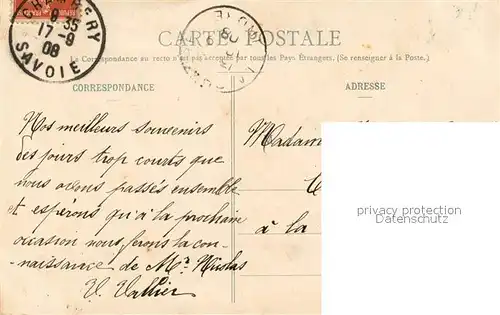 CHAMBERY
8 35
17-9
08
SAVOIE
CARTE POSTALE
La Correspondance au recto n'est pas acceptée par tous les Pays Étrangers. (Se renseigner à la Poste.)
CORRESPONDANCE
ADRESSE
Nos meilleurs souvenirs
des jours trop courts que
nous avons passés ensemble
et espérons qu'à la prochaine
occasion nous ferons la con-
naissance de Mr Nicolas
V. Vallier
Madam
à la
privacy protection
Datenschutz